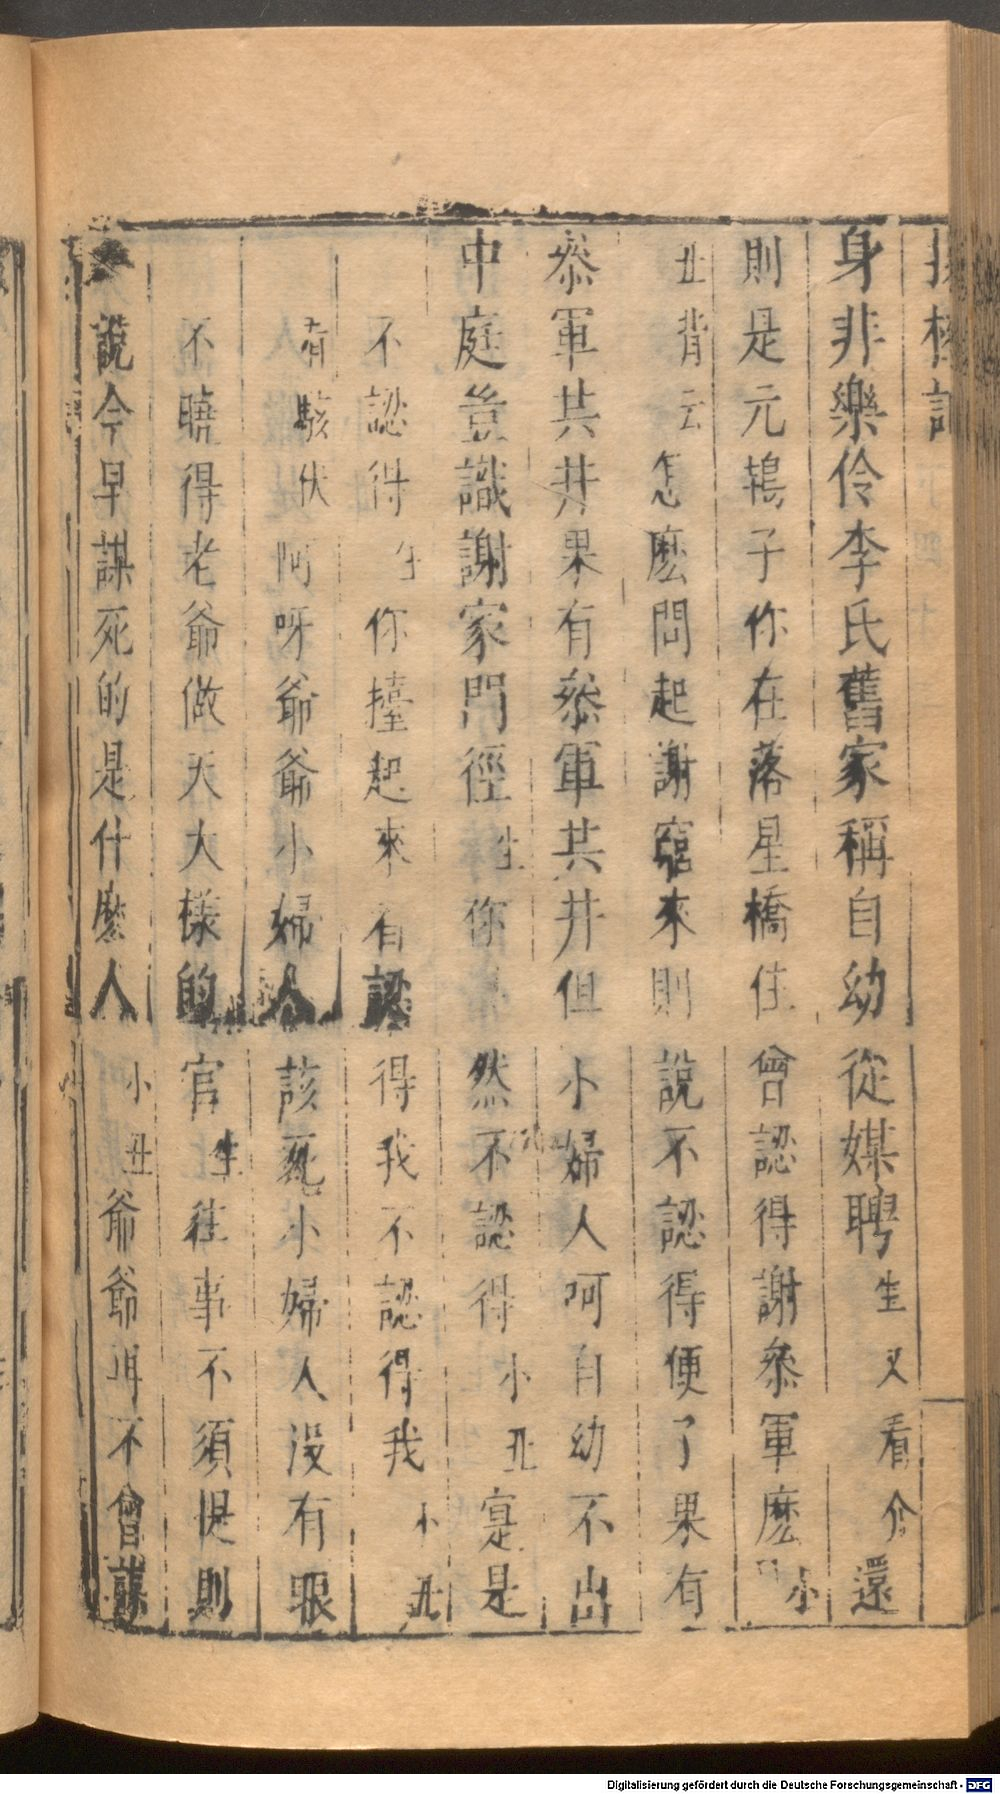 身非樂伶李氏舊家稱自幼從媒聘生又看介還
則是元鴇子你在落星橋住曾認得謝叅軍麽小
丑背云怎麽問起謝竊來則說不認得便了果有
叅軍共井果有叅軍共井但小婦人呵自幼不出
中庭豈識謝家門徑生你然不認得小丑寔是
不認得生你擡起來有認得我不認得我小丑
有駭伏阿呀爺爺小婦人該死小婦人沒有眼
不曉得老爺做天大樣的官生往事不須提則
說今早謀死的是什麽人小丑爺爺不曾謀
Digitalisierung gefördert durch die Deutsche Forschungsgemeinschaft - DFG